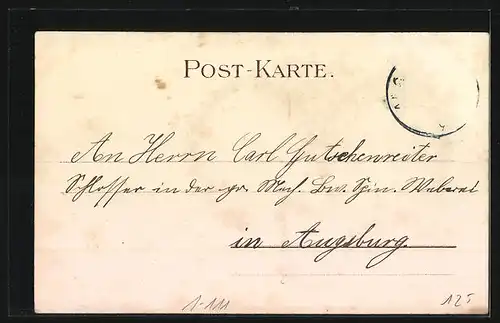 POST-KARTE.
An Herrn Carl Gutschenreiter
Schlosser in der gr. Mech. Bw. Spin. Weberei
in Augsburg.
1-111
125